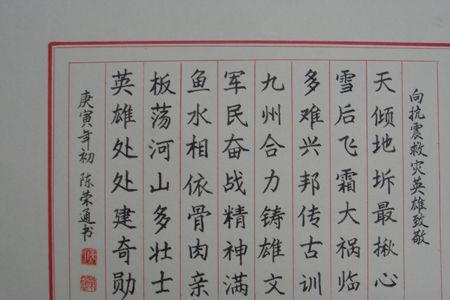 向抗震救灾英雄致敬
天倾地坼最揪心
雪后飞霜大祸临
多难兴邦传古训
九州合力铸雄文
军民奋战精神满
鱼水相依骨肉亲
板荡河山多壮士
英雄处处建奇勋
庚寅年初 陈荣通书